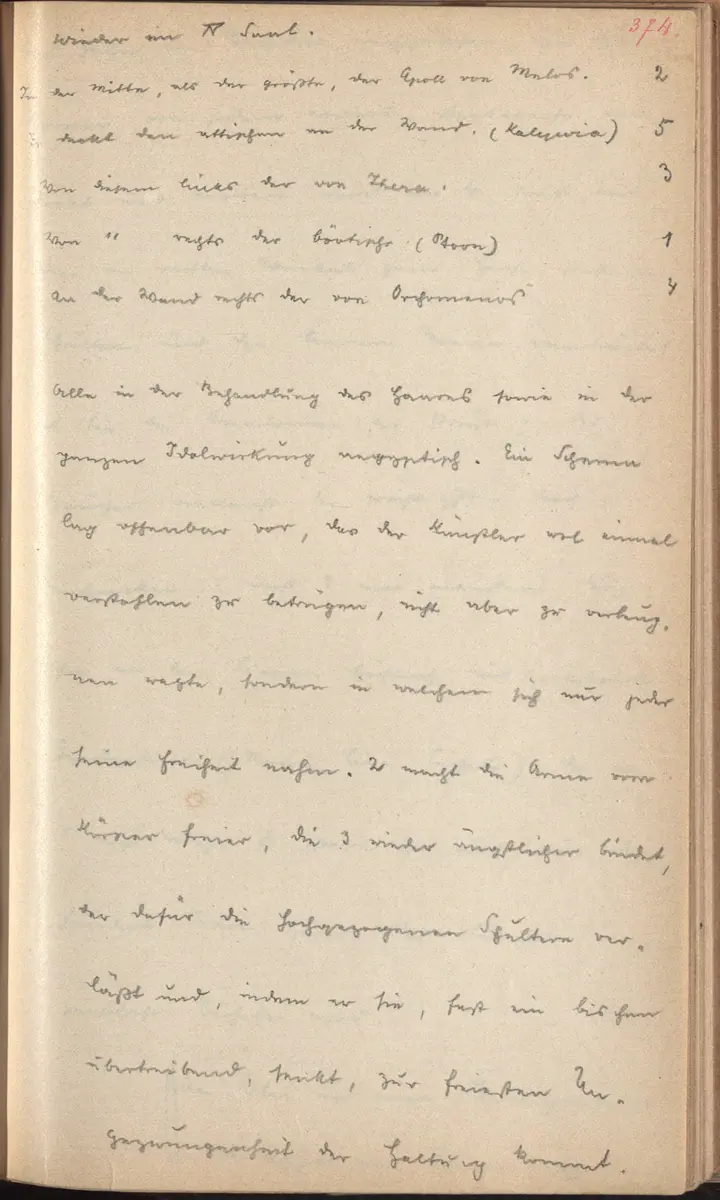 374.
wieder im IV Saal.
In der Mitte, als der größte, der Apoll von Melos. 2
deckt den attischen an der Wand. (Kalywia) 5
Von diesem links der von Thera. 3
Von " rechts der böotische. (Ptoon) 1
An der Wand rechts der von Orchomenos 4
Alle in der Behandlung des Haares sowie in der
ganzen Idolwirkung aegyptisch. Ein Schema
lag offenbar vor, das der Künstler wol einmal
verstohlen zu betrügen, nicht aber zu verleug-
nen wagte, sondern in welchem sich nur jeder
seine Freiheit nahm. 2 macht die Arme vom
Körper freier, die 3 wieder ängstlicher bindet,
der dafür die hochgezogenen Schultern ver-
läßt und, indem er sie, fast ein bischen
übertreibend, senkt, zur freiesten Un-
gezwungenheit der Haltung kommt.